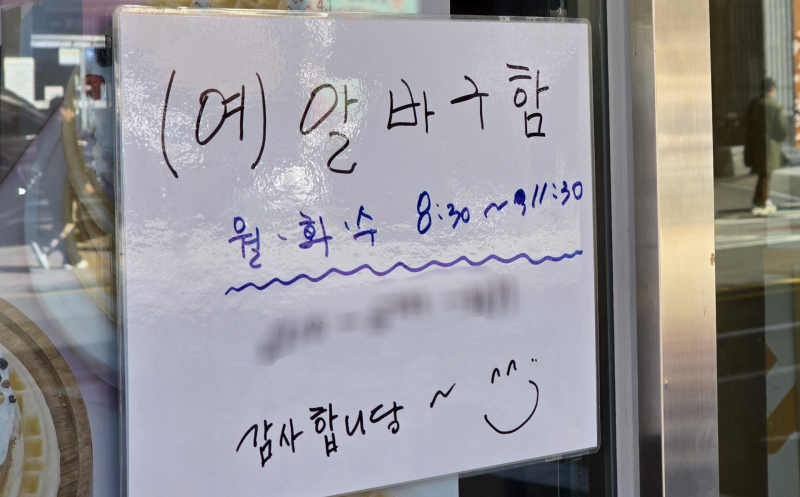 (여) 알바구함
월·화·수 8:30~11:30
감사합니당~